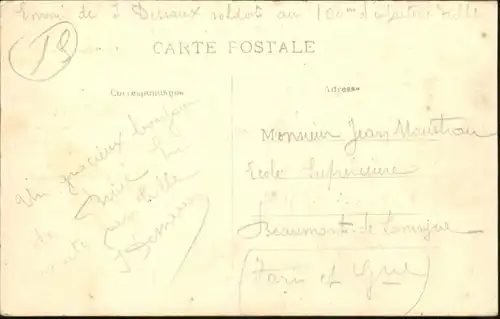 Envoi de J Dessaux soldat au 100me d'infanterie Tulle
CARTE POSTALE
Correspondance
Adresse
Un gracieux bonjour
de
route pour Tulle
Monsieur Jean
Ecole Supérieure
Beaumont de Lomagne
(Tarn et Gne)